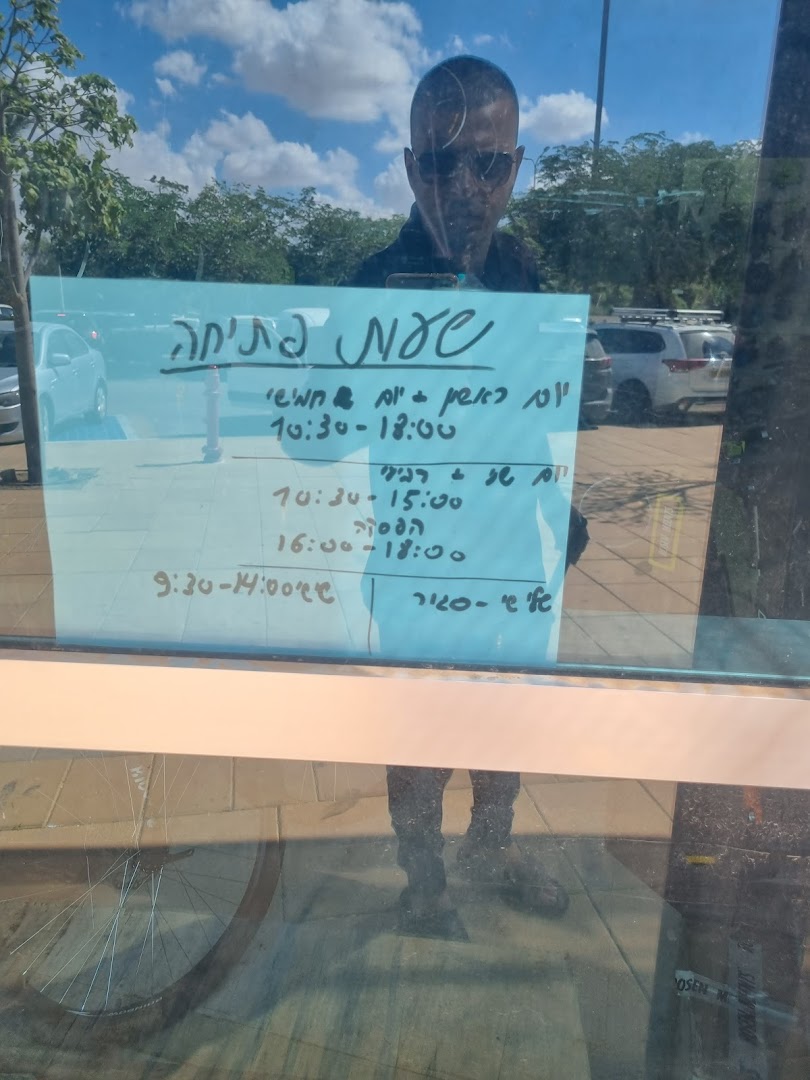 שעות פתיחה
יום ראשון + יום חמישי
10:30-18:00
יום שני + רביעי
10:30-15:00
הפסקה
16:00-18:00
שלישי - סגור
שישי 9:30-14:00
OSEN M